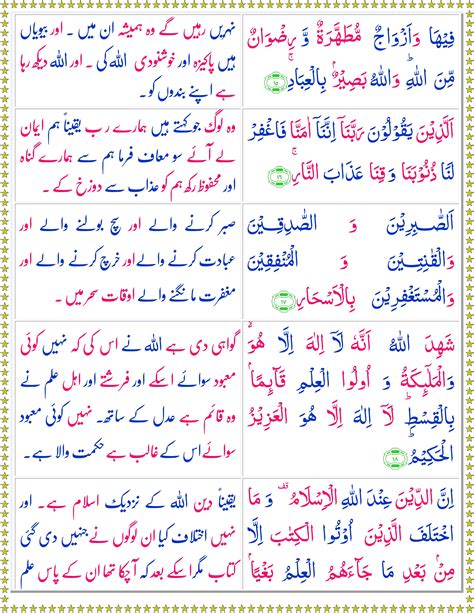 فِيْهَا وَاَزْوَاجٌ مُّطَهَّرَةٌ وَّ رِضْوَانٌ
مِّنَ اللّٰهِ ؕ وَاللّٰهُ بَصِيْرٌۢ بِالْعِبَادِ ۚ ﴿۱۵﴾
نہریں رہیں گے وہ ہمیشہ ان میں ۔ اور بیویاں
ہیں پاکیزہ اور خوشنودی اللہ کی ۔ اور اللہ دیکھ رہا
ہے اپنے بندوں کو ۔
اَلَّذِيْنَ يَقُوْلُوْنَ رَبَّنَاۤ اِنَّنَاۤ اٰمَنَّا فَاغْفِرْ
لَنَا ذُنُوْبَنَا وَقِنَا عَذَابَ النَّارِ ۚ ﴿۱۶﴾
وہ لوگ جو کہتے ہیں ہمارے رب یقیناً ہم ایمان
لے آئے سو معاف فرما ہم سے ہمارے گناہ
اور محفوظ رکھ ہم کو عذاب سے دوزخ کے ۔
اَلصّٰبِرِيْنَ وَ الصّٰدِقِيْنَ
وَالْقٰنِتِيْنَ وَ الْمُنْفِقِيْنَ
وَالْمُسْتَغْفِرِيْنَ بِالْاَسْحَارِ ﴿۱۷﴾
صبر کرنے والے اور سچ بولنے والے اور
عبادت کرنے والے اور خرچ کرنے والے اور
مغفرت مانگنے والے اوقات سحر میں ۔
شَهِدَ اللّٰهُ اَنَّهٗ لَاۤ اِلٰهَ اِلَّا هُوَ ۙ
وَالْمَلٰٓئِكَةُ وَ اُولُوا الْعِلْمِ قَآئِمًاۢ
بِالْقِسْطِ ؕ لَاۤ اِلٰهَ اِلَّا هُوَ الْعَزِيْزُ
الْحَكِيْمُ ؕ ﴿۱۸﴾
گواہی دی ہے اللہ نے اس کی کہ نہیں کوئی
معبود سوائے اسکے اور فرشتے اور اہل علم نے
وہ قائم ہے عدل کے ساتھ۔ نہیں کوئی معبود
سوائے اس کے غالب ہے حکمت والا ہے۔
اِنَّ الدِّيْنَ عِنْدَ اللّٰهِ الْاِسْلَامُ ۟ وَ مَا
اخْتَلَفَ الَّذِيْنَ اُوْتُوا الْكِتٰبَ اِلَّا
مِنْۢ بَعْدِ مَا جَآءَهُمُ الْعِلْمُ بَغْيًاۢ
یقیناً دین اللہ کے نزدیک اسلام ہے۔ اور
نہیں اختلاف کیا ان لوگوں نے جنہیں دی گئی
کتاب مگر اسکے بعد کہ آچکا تھا ان کے پاس علم